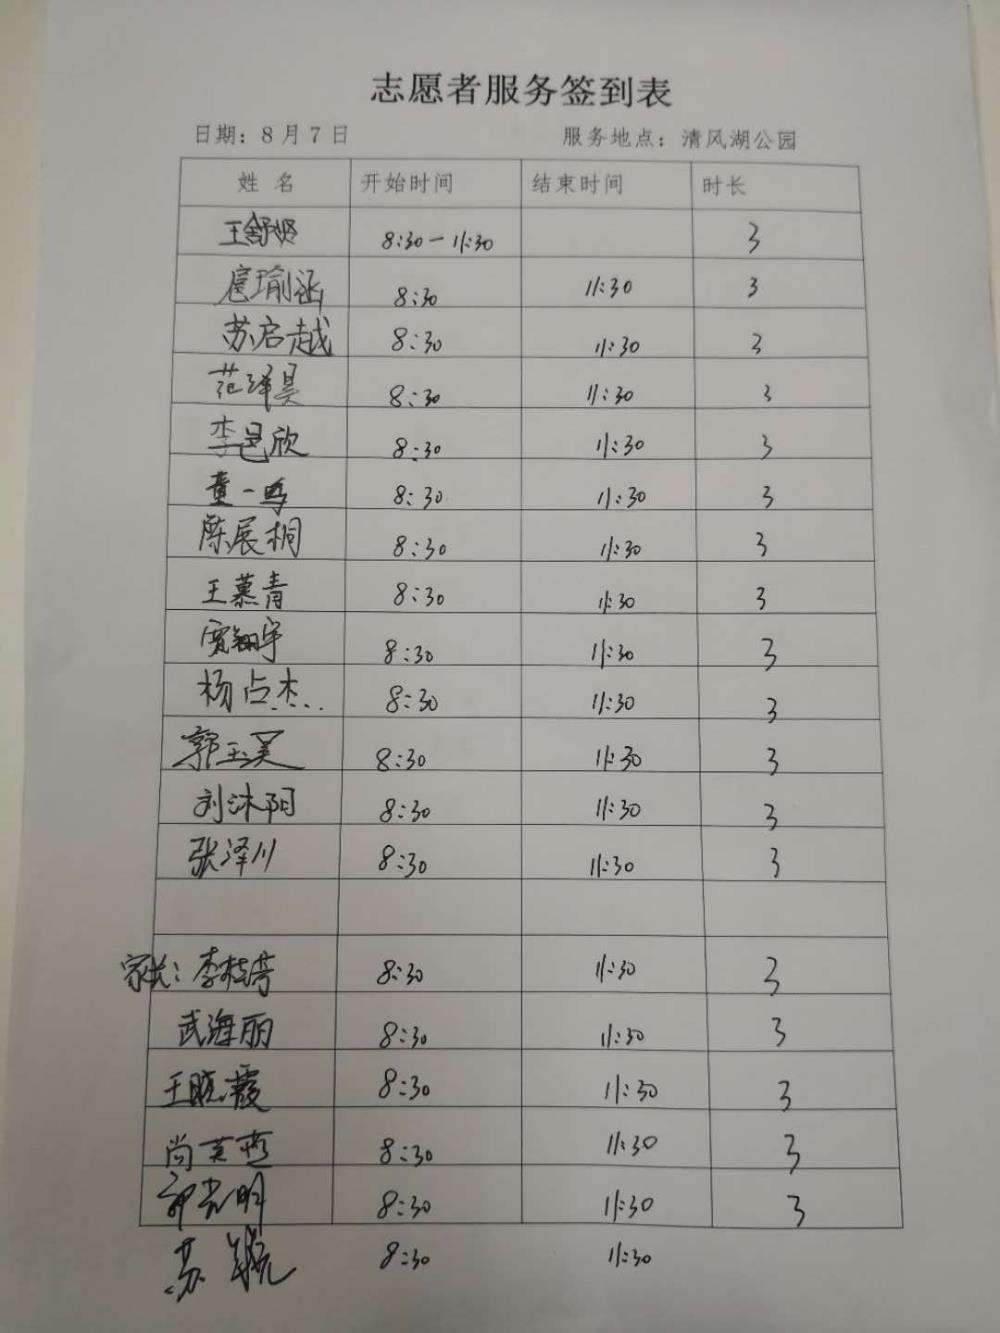 志愿者服务签到表
日期：8月7日 服务地点：清风湖公园
姓 名 开始时间 结束时间 时长
王舒 8:30-11:30 3
扈瑜涵 8:30 11:30 3
苏启越 8:30 11:30 3
范泽昊 8:30 11:30 3
李昱欣 8:30 11:30 3
童一鸣 8:30 11:30 3
陈展桐 8:30 11:30 3
王慕青 8:30 11:30 3
贾翔宇 8:30 11:30 3
杨占杰 8:30 11:30 3
郭玉昊 8:30 11:30 3
刘沐阳 8:30 11:30 3
张泽川 8:30 11:30 3
家长：李桂芳 8:30 11:30 3
武海丽 8:30 11:30 3
王晓霞 8:30 11:30 3
尚 8:30 11:30 3
郭光明 8:30 11:30 3
苏 8:30 11:30